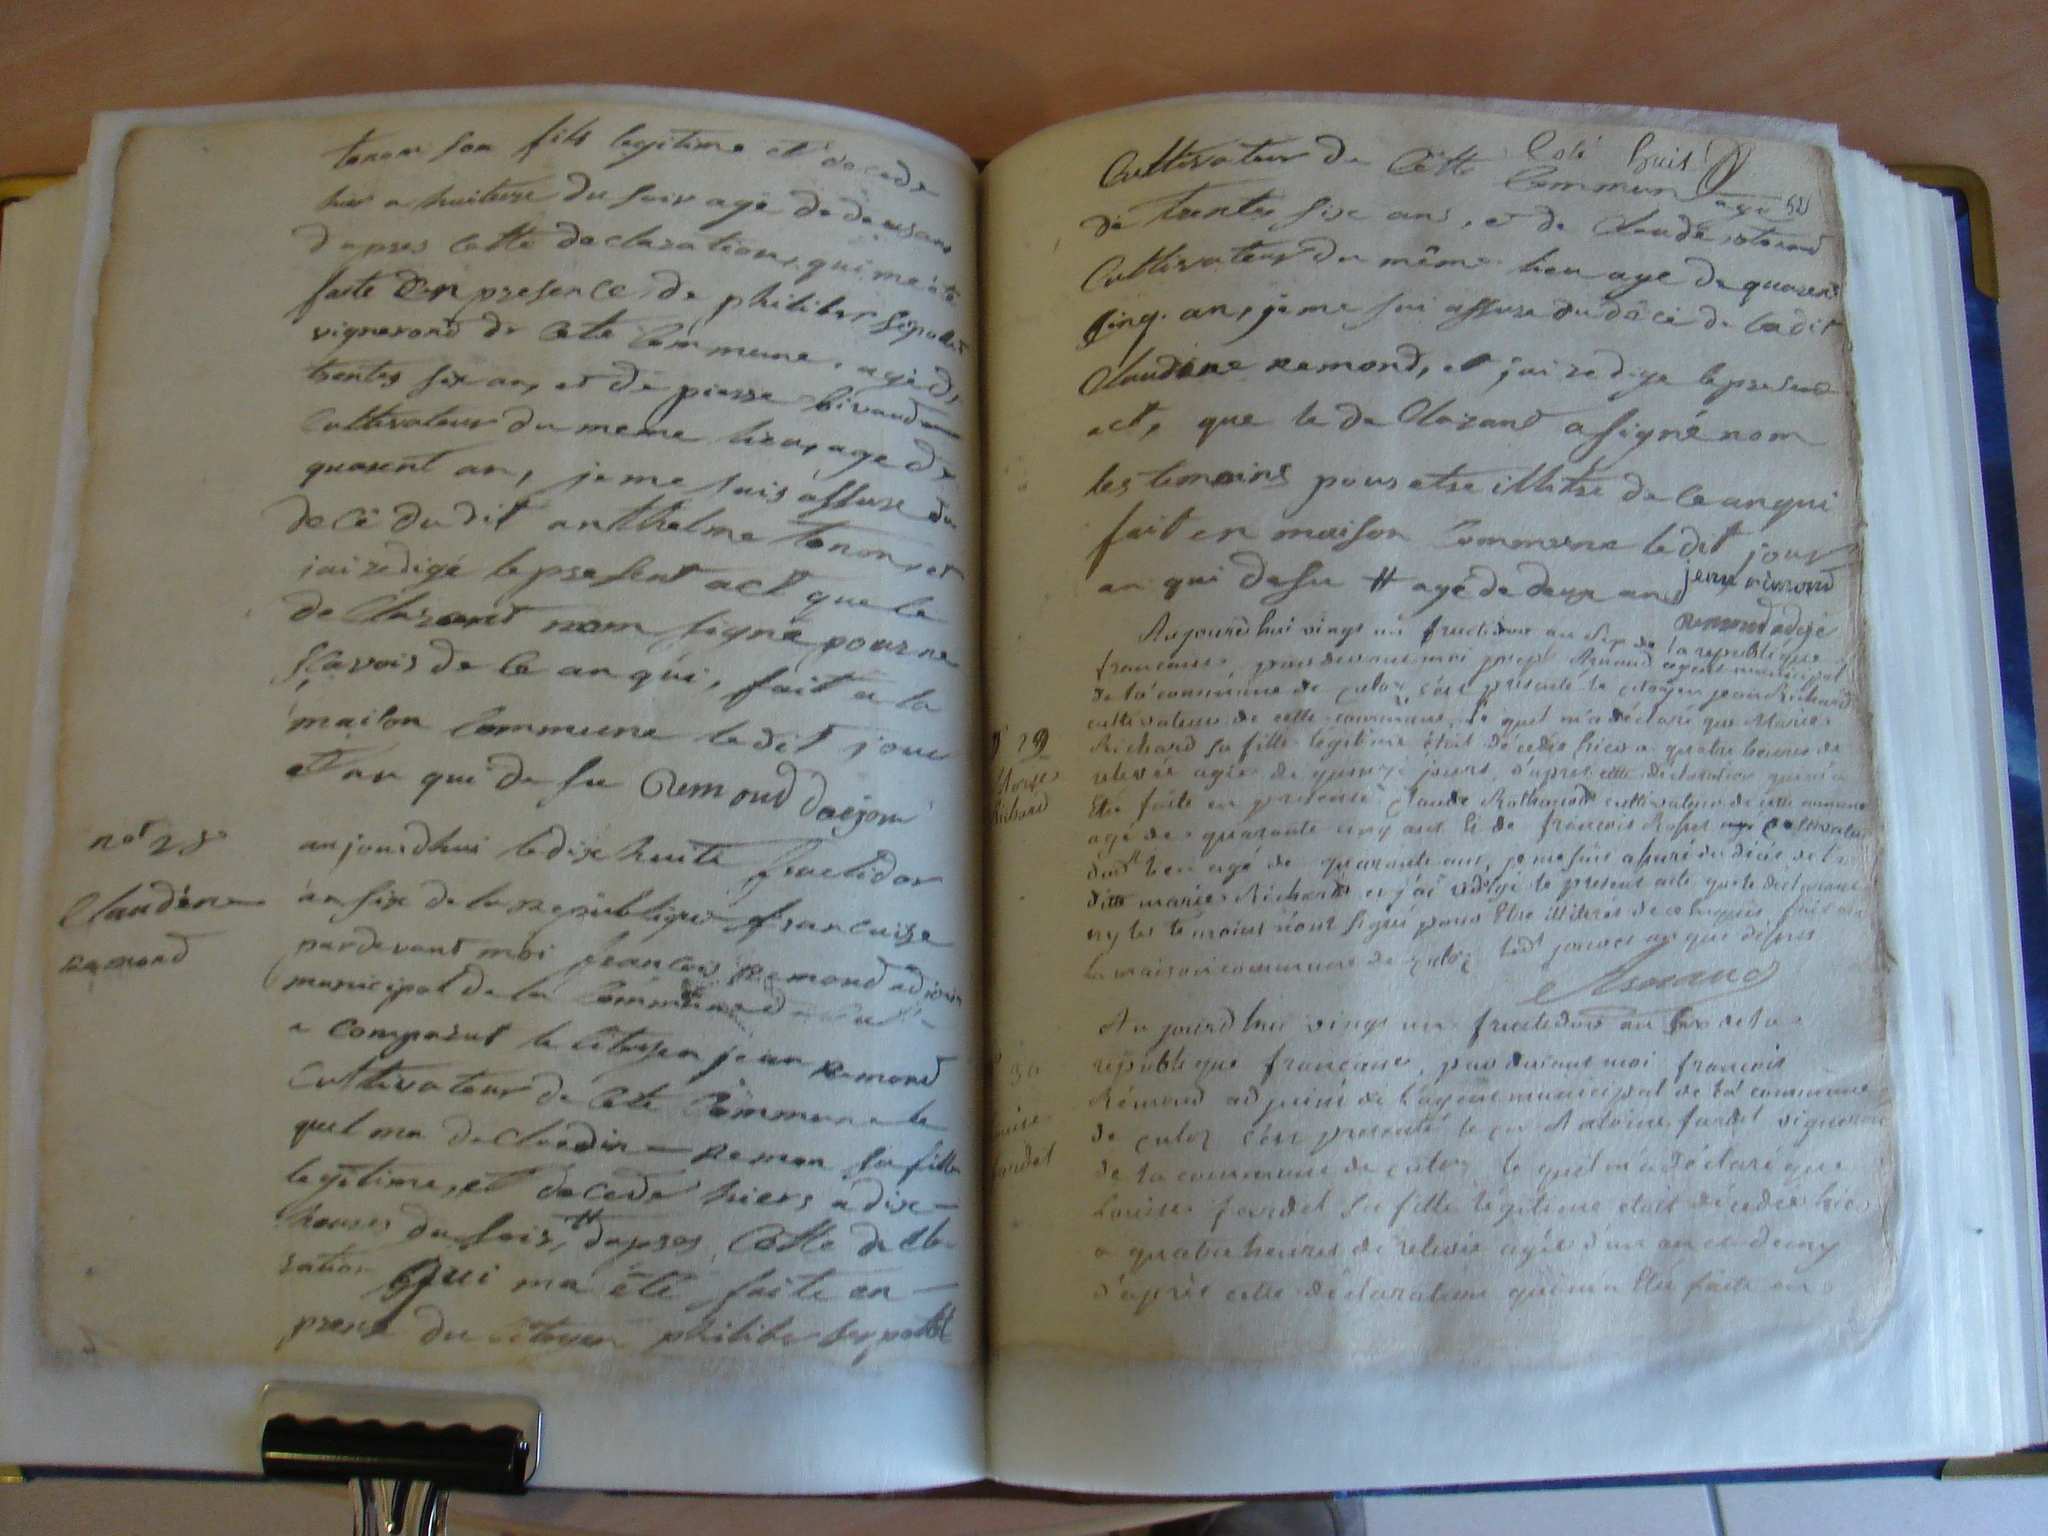 tenon son fils legitime et decede
hier a huiture du soir age de deuxans
dapres cette declaration, qui me été
faite en presence de philiber
vignerond de cete Commune, agé de
trentes six an, et de pierre
Cultivateur du meme lieu, age de
quarent an, je me suis assure du
decé du dit anthelme tenon, et
jai redigé le present act que le
de Clarant nom signé pour ne
savois de ce an qui, fait a la
maison Commune le dit jour
et an qui de su Remond adejoin
no 28
Claudine
remond
aujourdhui le dix huite fructidor
an six de la republique francaise
pardevant moi francois remond adjoin
municipal de la Commune
a comparut le citoyen jean remond
Cultivateur de Cete Commune le
quel ma de claudine remon sa fille
legitime, et decede hiers a dix
heures du soir, # dapres Cette decla-
ration qui ma été faite en
prens du citoyen philiber
Coté huit
52
Cultivateur de Cette Commun age
de trentes six ans, et de Claude
Cultivateur du même lieu age de quarent
cinq an, je me sui assure du décé de ladit
Claudine remond, et jai redige le present
act, que le de Clarant a signé nom
les temoins pour etre illitre de ce anqui
fait en maison Commune le dit jour
an qui desu # agé de deux an jean remond
remond adejoi
Aujourdhui vingt un fructidor an six de la republique
francaise, pardevant moi joseph Arnaud agent municipal
de la commune de culoz c'est présenté le citoyen jean Richard
cultivateur de cette commune, le quel m'a déclaré que Marie
Richard sa fille légitime étoit décédée hier a quatre heures de
relevée agée de quinze jours, d'après cette déclaration qui m'a
été faite en présence Claude cultivateur de cette commune
agé de quarante cinq ans et de françois Rosset cultivateur
dudt lieu agé de quarante ans, je me suis assuré du décés de la
dite marie Richard et j'ai rédigé le present acte que le déclarant
ny les temoins n'ont signé pour être illiterés de ce enquis, fait en
la maison commune de culoz ledt jour et an que dessus
Arnaud
29
Marie
Richard
Aujourdhui vingt un fructidor an six de la
republique francaise, pardevant moi françois
Rémond adjoint de l'agent municipal de la commune
de culoz c'est presenté le cn Antoine fardet vigneron
de la commune de culoz le quel m'a déclaré que
Louise fardet sa fille légitime étoit décédée hier
a quatre heures de relevée agée d'un an et demy
d'après cette déclaration qui m'a été faite en
30
Louise
fardet